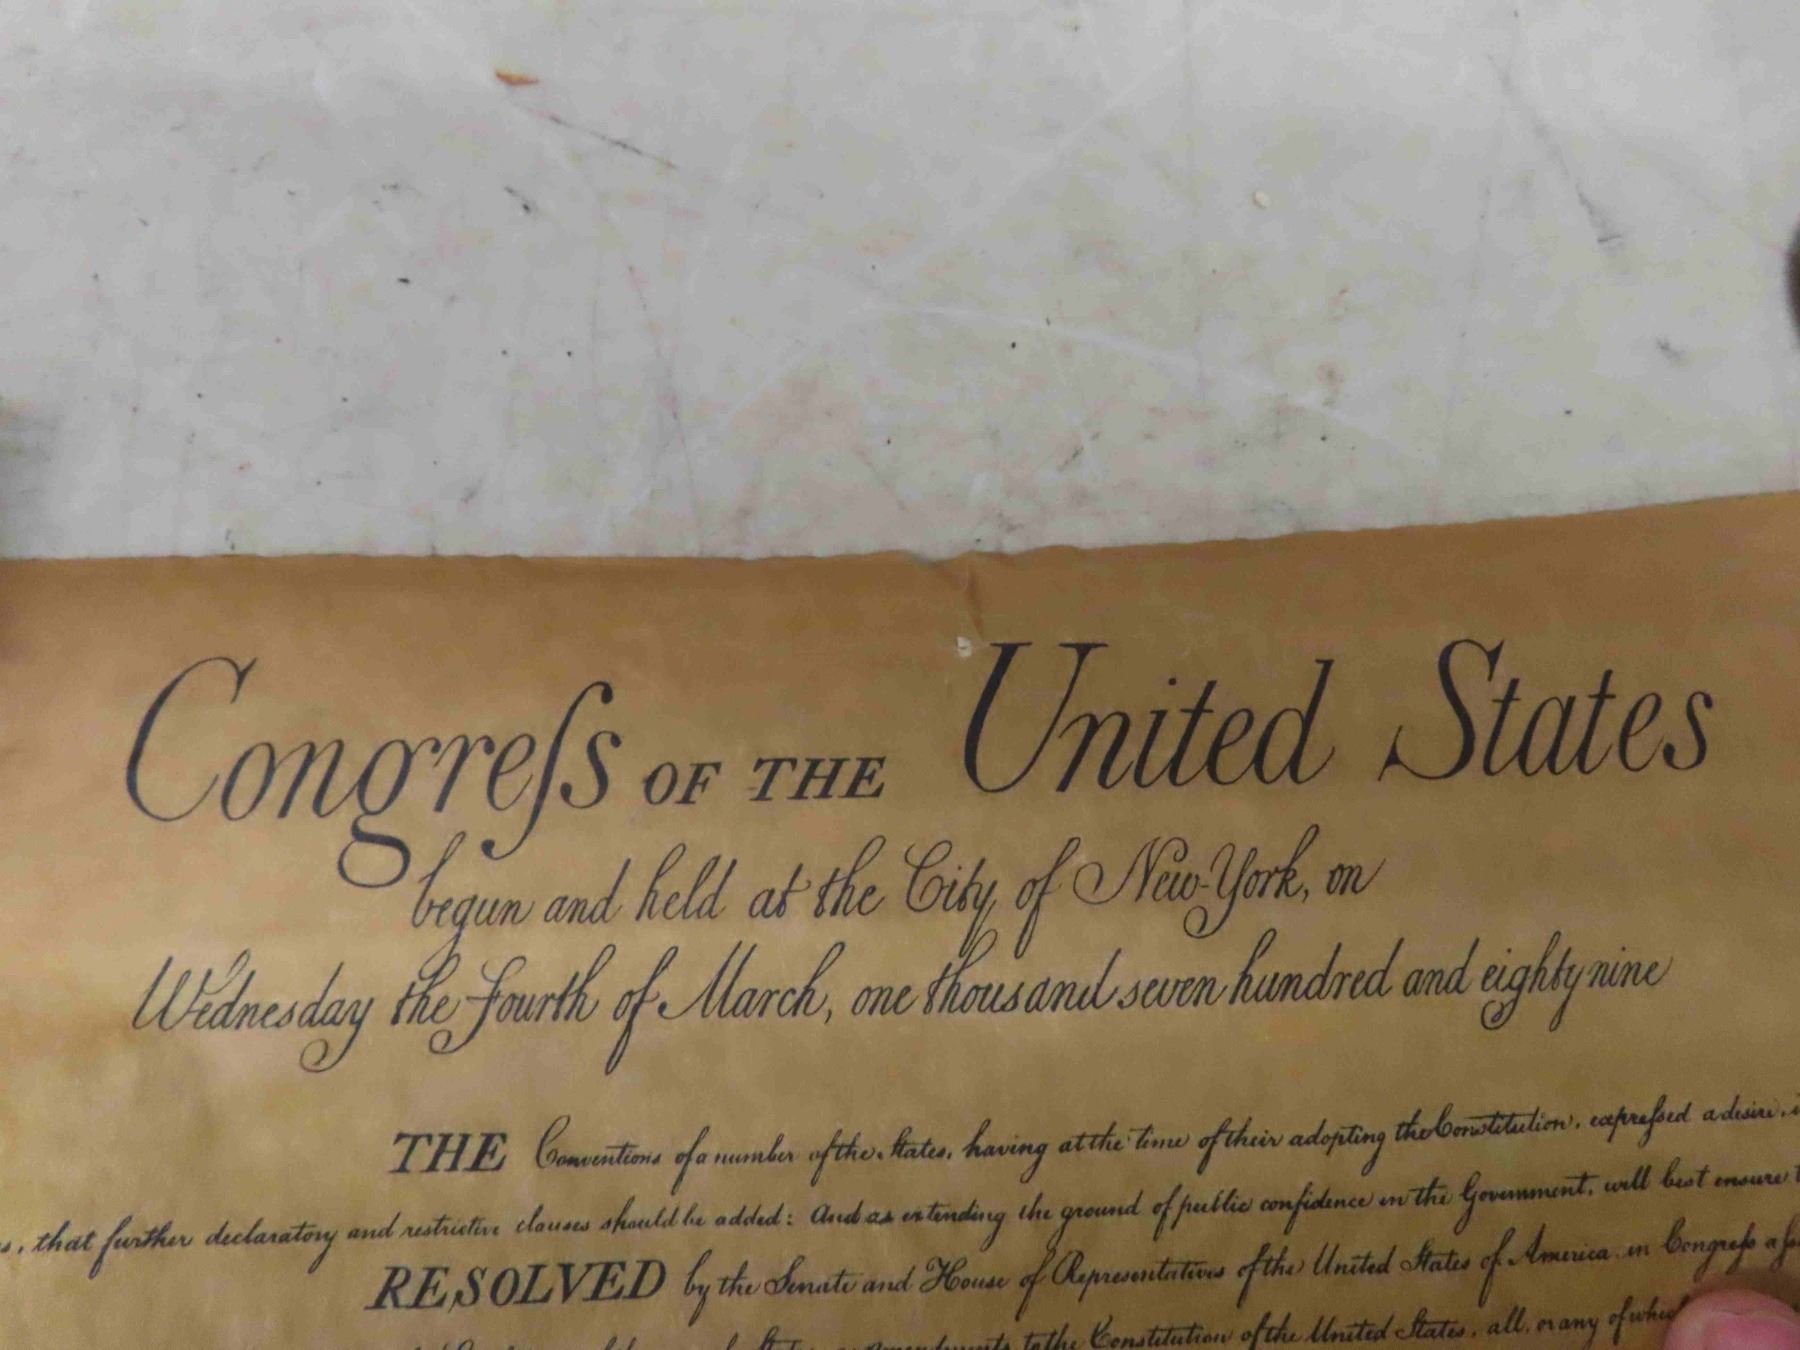 Congreſs OF THE United States
begun and held at the City of New-York, on
Wednesday the fourth of March, one thousand seven hundred and eighty nine
THE Conventions of a number of the States, having at the time of their adopting the Constitution, expreſsed a desire,
that further declaratory and restrictive clauses should be added: And as extending the ground of public confidence in the Government, will best ensure
RESOLVED by the Senate and House of Representatives of the United States of America in Congreſs
to the Constitution of the United States, all, or any of